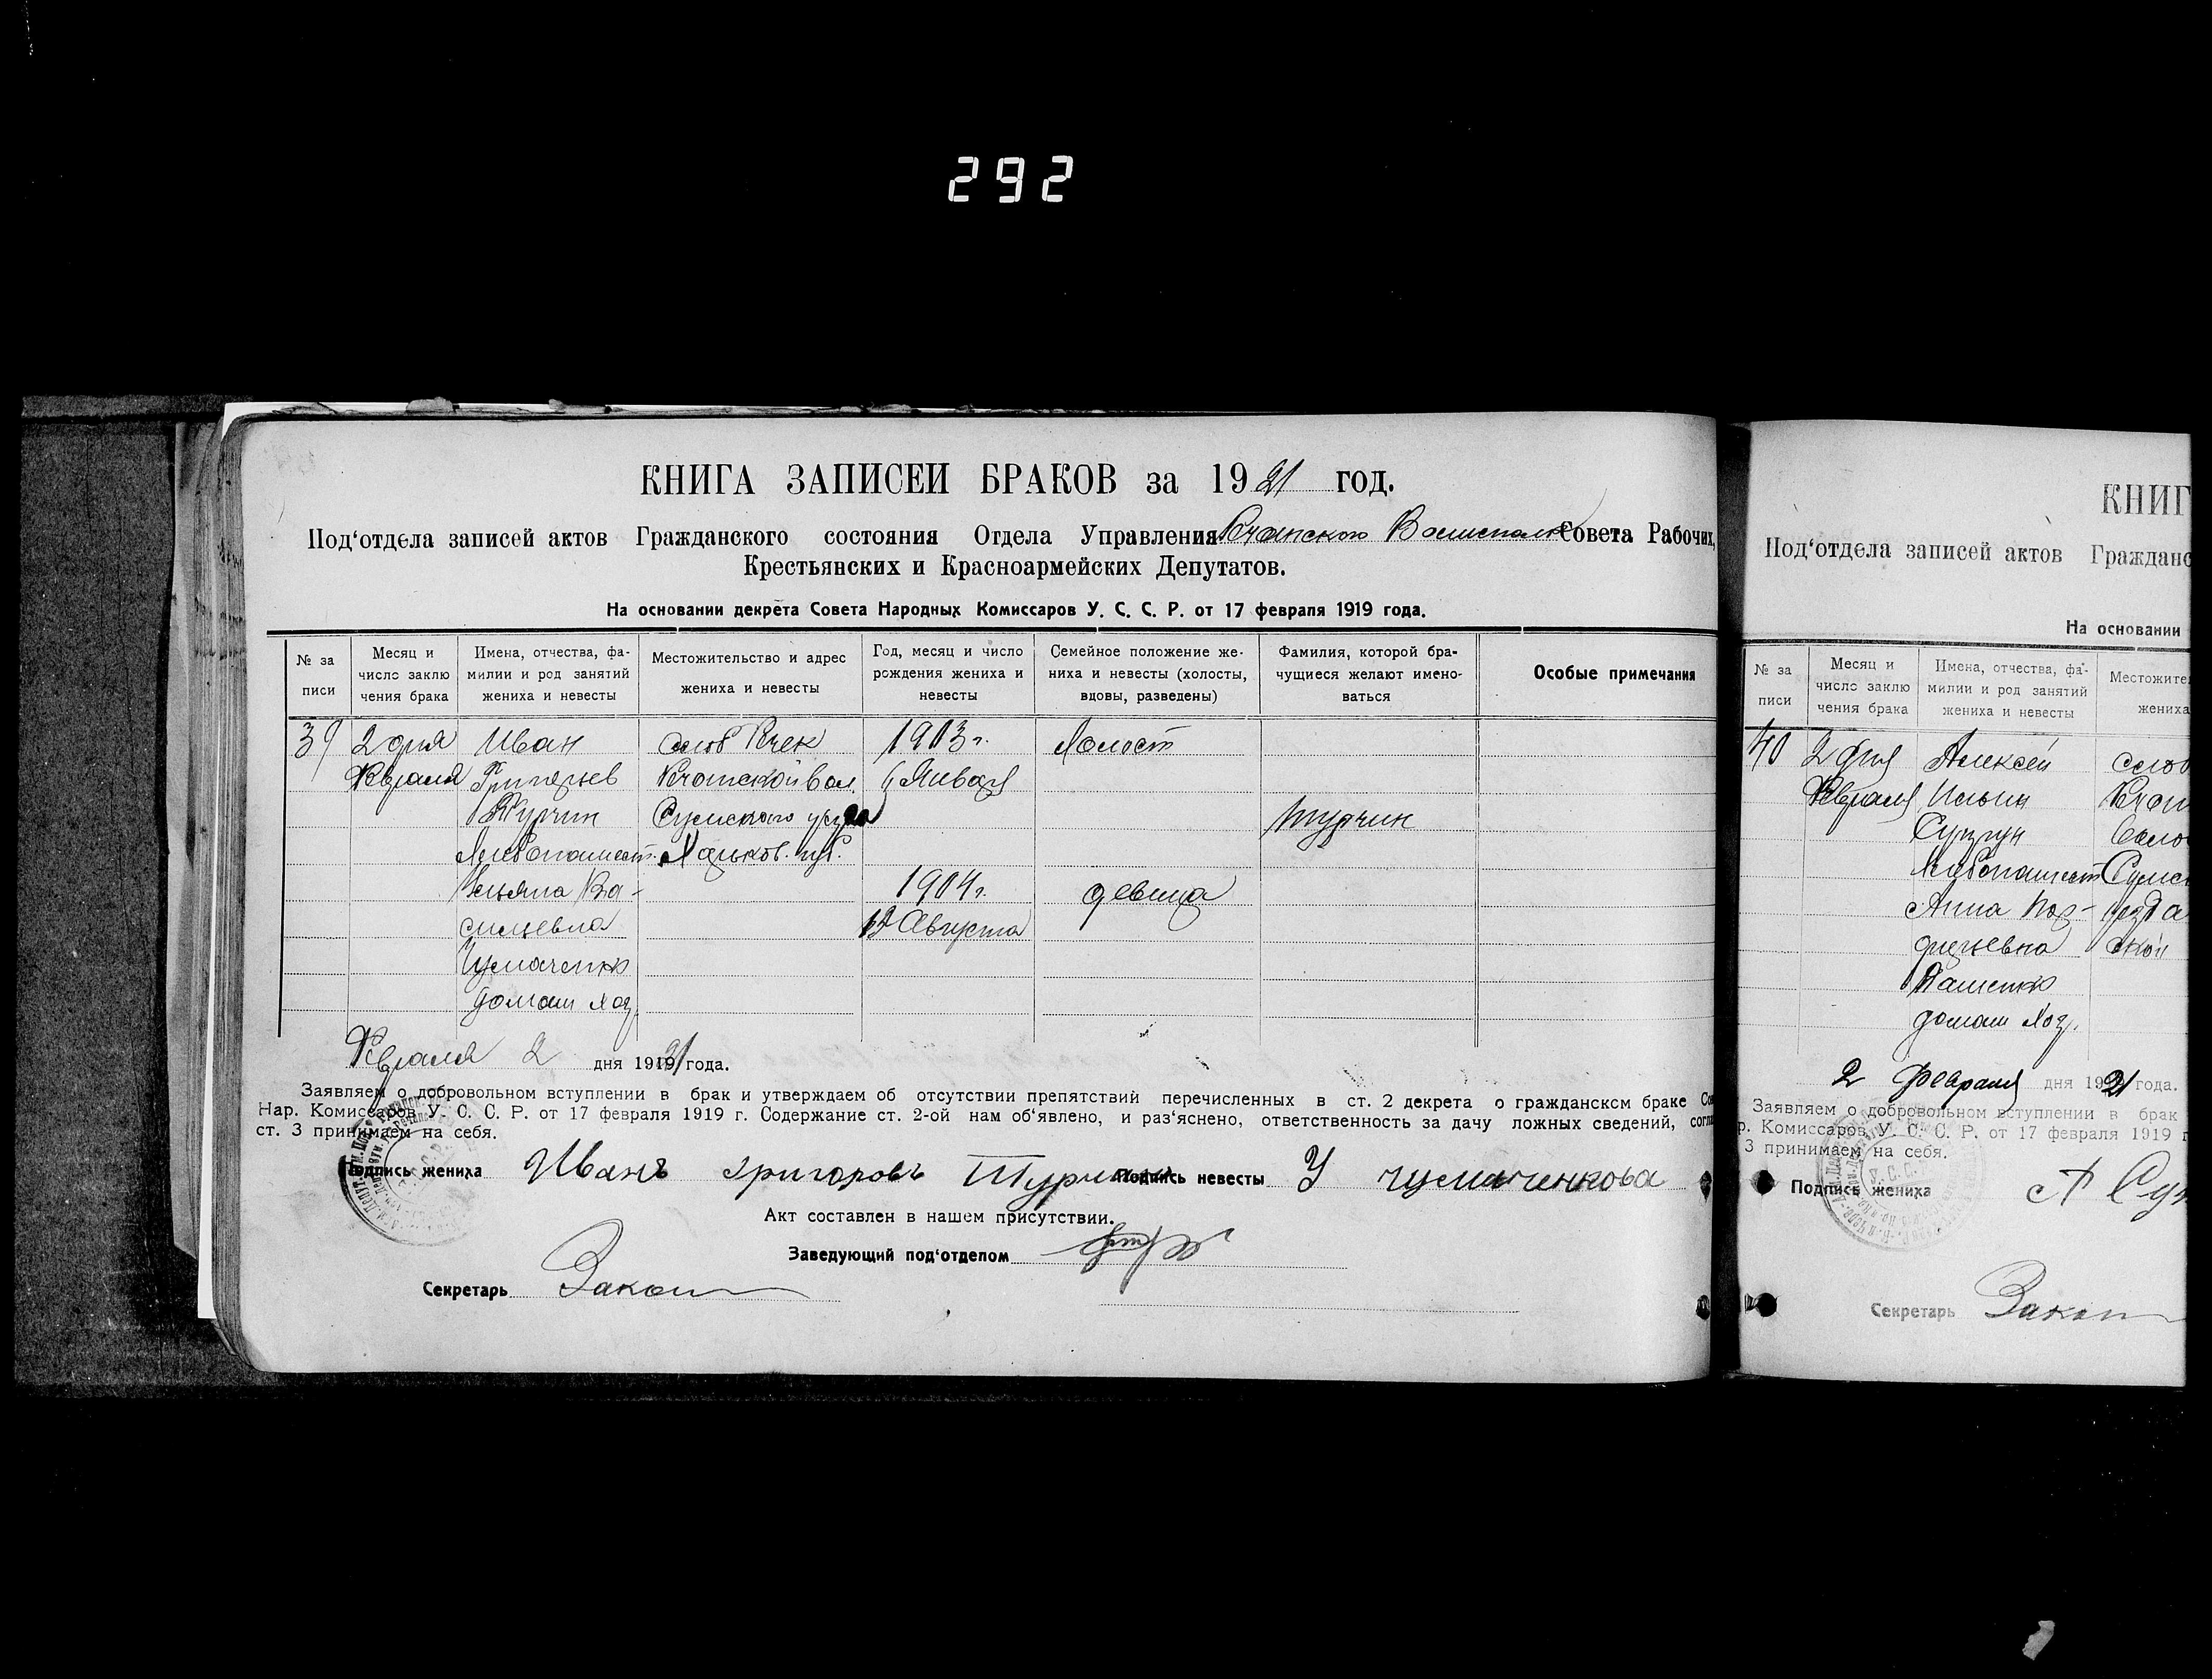 292
КНИГА ЗАПИСЕЙ БРАКОВ за 1921 год.
Под‘отдела записей актов Гражданского состояния Отдела Управления Речанского Волисполк Совета Рабочих,
Крестьянских и Красноармейских Депутатов.
На основании декрета Совета Народных Комиссаров У. С. С. Р. от 17 февраля 1919 года.
№ за писи
Месяц и число заклю чения брака
Имена, отчества, фа- милии и род занятий жениха и невесты
Местожительство и адрес жениха и невесты
Год, месяц и число рождения жениха и невесты
Семейное положение же- ниха и невесты (холосты, вдовы, разведены)
Фамилия, которой бра- чущиеся желают имено- ваться
Особые примечания
39 2 дня Иван слоб Речек 1903 г. Холост
Февраля Григорьев Речанской вол. Января
Турчин Сумского уезда Турчин
Хлебопашест. Харьков. губ.
Ульяна Ва- 1904 г. девица
сильевна 12 Августа
Чумаченко
домаш хоз.
Февраля 2 дня 1921 года.
Заявляем о добровольном вступлении в брак и утверждаем об отсутствии препятствий перечисленных в ст. 2 декрета о гражданском браке Со
Нар. Комиссаров У. С. С. Р. от 17 февраля 1919 г. Содержание ст. 2-ой нам об‘явлено, и раз‘яснено, ответственность за дачу ложных сведений, согл
ст. 3 принимаем на себя.
Подпись жениха Иванъ Григоровъ Турчин Подпись невесты У чумаченкова
Акт составлен в нашем присутствии.
Заведующий под‘отделом
Секретарь
КНИГ
Под‘отдела записей актов Гражданс
На основании
№ за писи
Месяц и число заклю чения брака
Имена, отчества, фа- милии и род занятий жениха и невесты
Местожител
жениха
40 2 дня Алексей слоб
Февраля Ильин Речан
Супрун Воло
Хлебопашест Сумс
Анна Пор- уезда
фирьевна ской
домаш хоз.
2 Февраля дня 1921 года.
Заявляем о добровольном вступлении в брак
р. Комиссаров У. С. С. Р. от 17 февраля 1919 г
3 принимаем на себя.
Подпись жениха А Суп
Секретарь